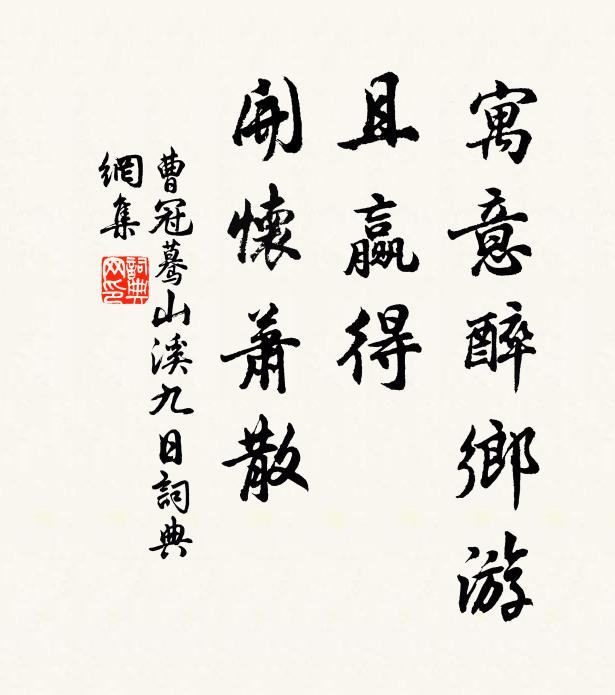 寓意醉鄉游
且贏得
開懷蕭散
曹冠驀山溪九日詞典
網集
詞典網印